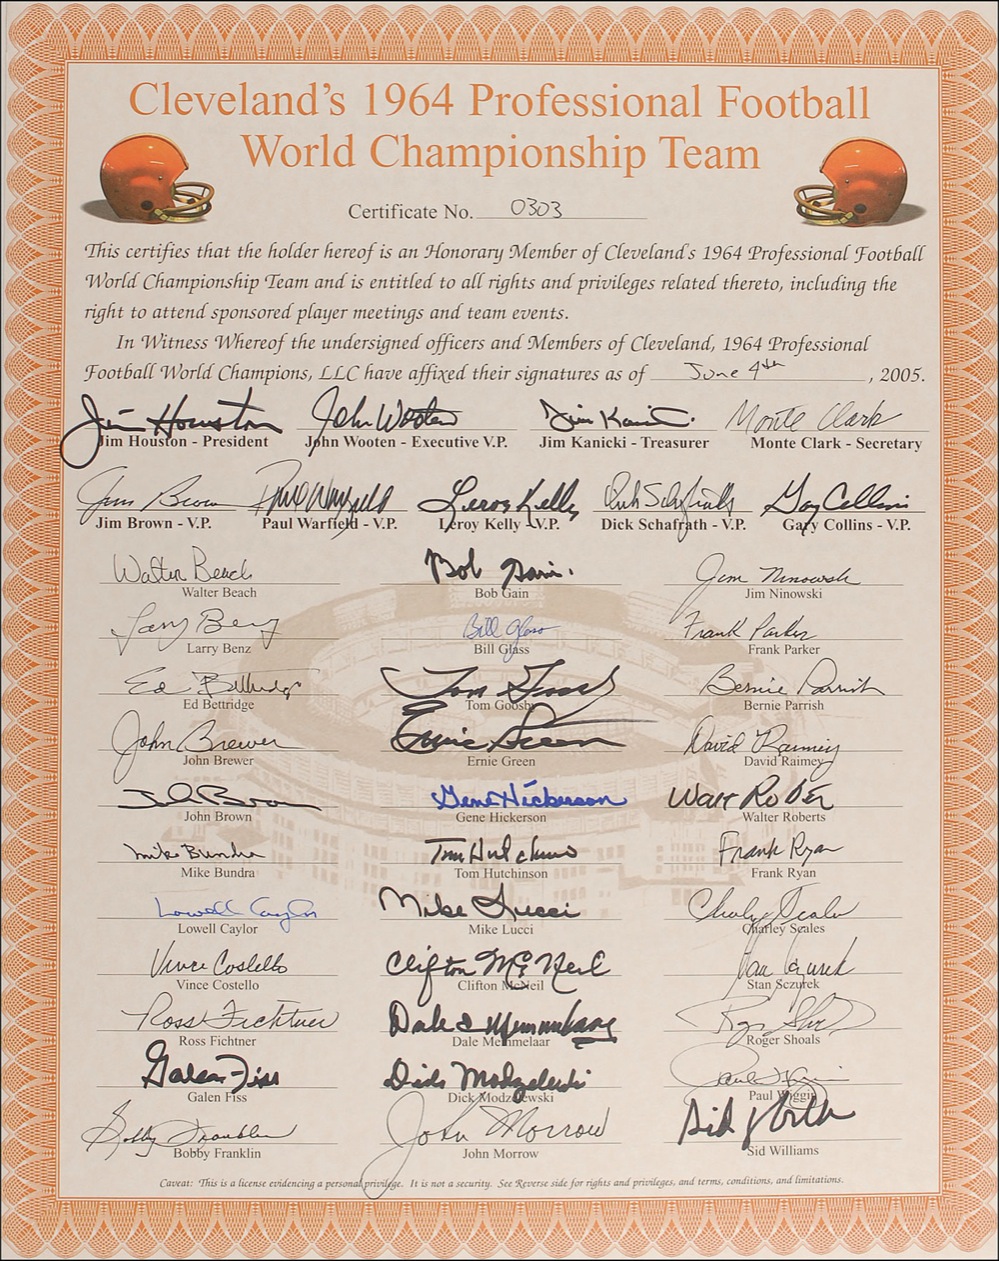 Cleveland's 1964 Professional Football
World Championship Team
Certificate No. 0303
This certifies that the holder hereof is an Honorary Member of Cleveland's 1964 Professional Football
World Championship Team and is entitled to all rights and privileges related thereto, including the
right to attend sponsored player meetings and team events.
In Witness Whereof the undersigned officers and Members of Cleveland, 1964 Professional
Football World Champions, LLC have affixed their signatures as of June 4th, 2005.
Jim Houston John Wooten Jim Kanicki Monte Clark
Jim Houston - President John Wooten - Executive V.P. Jim Kanicki - Treasurer Monte Clark - Secretary
Jim Brown Paul Warfield Leroy Kelly Dick Schafrath Gary Collins
Jim Brown - V.P. Paul Warfield - V.P. Leroy Kelly - V.P. Dick Schafrath - V.P. Gary Collins - V.P.
Walter Beach Bob Gain Jim Ninowski
Walter Beach Bob Gain Jim Ninowski
Larry Benz Bill Glass Frank Parker
Larry Benz Bill Glass Frank Parker
Ed Bettridge Tom Goosby Bernie Parrish
Ed Bettridge Tom Goosby Bernie Parrish
John Brewer Ernie Green David Raimey
John Brewer Ernie Green David Raimey
John Brown Gene Hickerson Walt Roberts
John Brown Gene Hickerson Walter Roberts
Mike Bundra Tom Hutchinson Frank Ryan
Mike Bundra Tom Hutchinson Frank Ryan
Lowell Caylor Mike Lucci Charley Scales
Lowell Caylor Mike Lucci Charley Scales
Vince Costello Clifton McNeil Stan Sczurek
Vince Costello Clifton McNeil Stan Sczurek
Ross Fichtner Dale Memmelaar Roger Shoals
Ross Fichtner Dale Memmelaar Roger Shoals
Galen Fiss Dick Modzelewski Paul Wiggin
Galen Fiss Dick Modzelewski Paul Wiggin
Bobby Franklin John Morrow Sid Williams
Bobby Franklin John Morrow Sid Williams
Caveat: This is a license evidencing a personal privilege. It is not a security. See Reverse side for rights and privileges, and terms, conditions, and limitations.